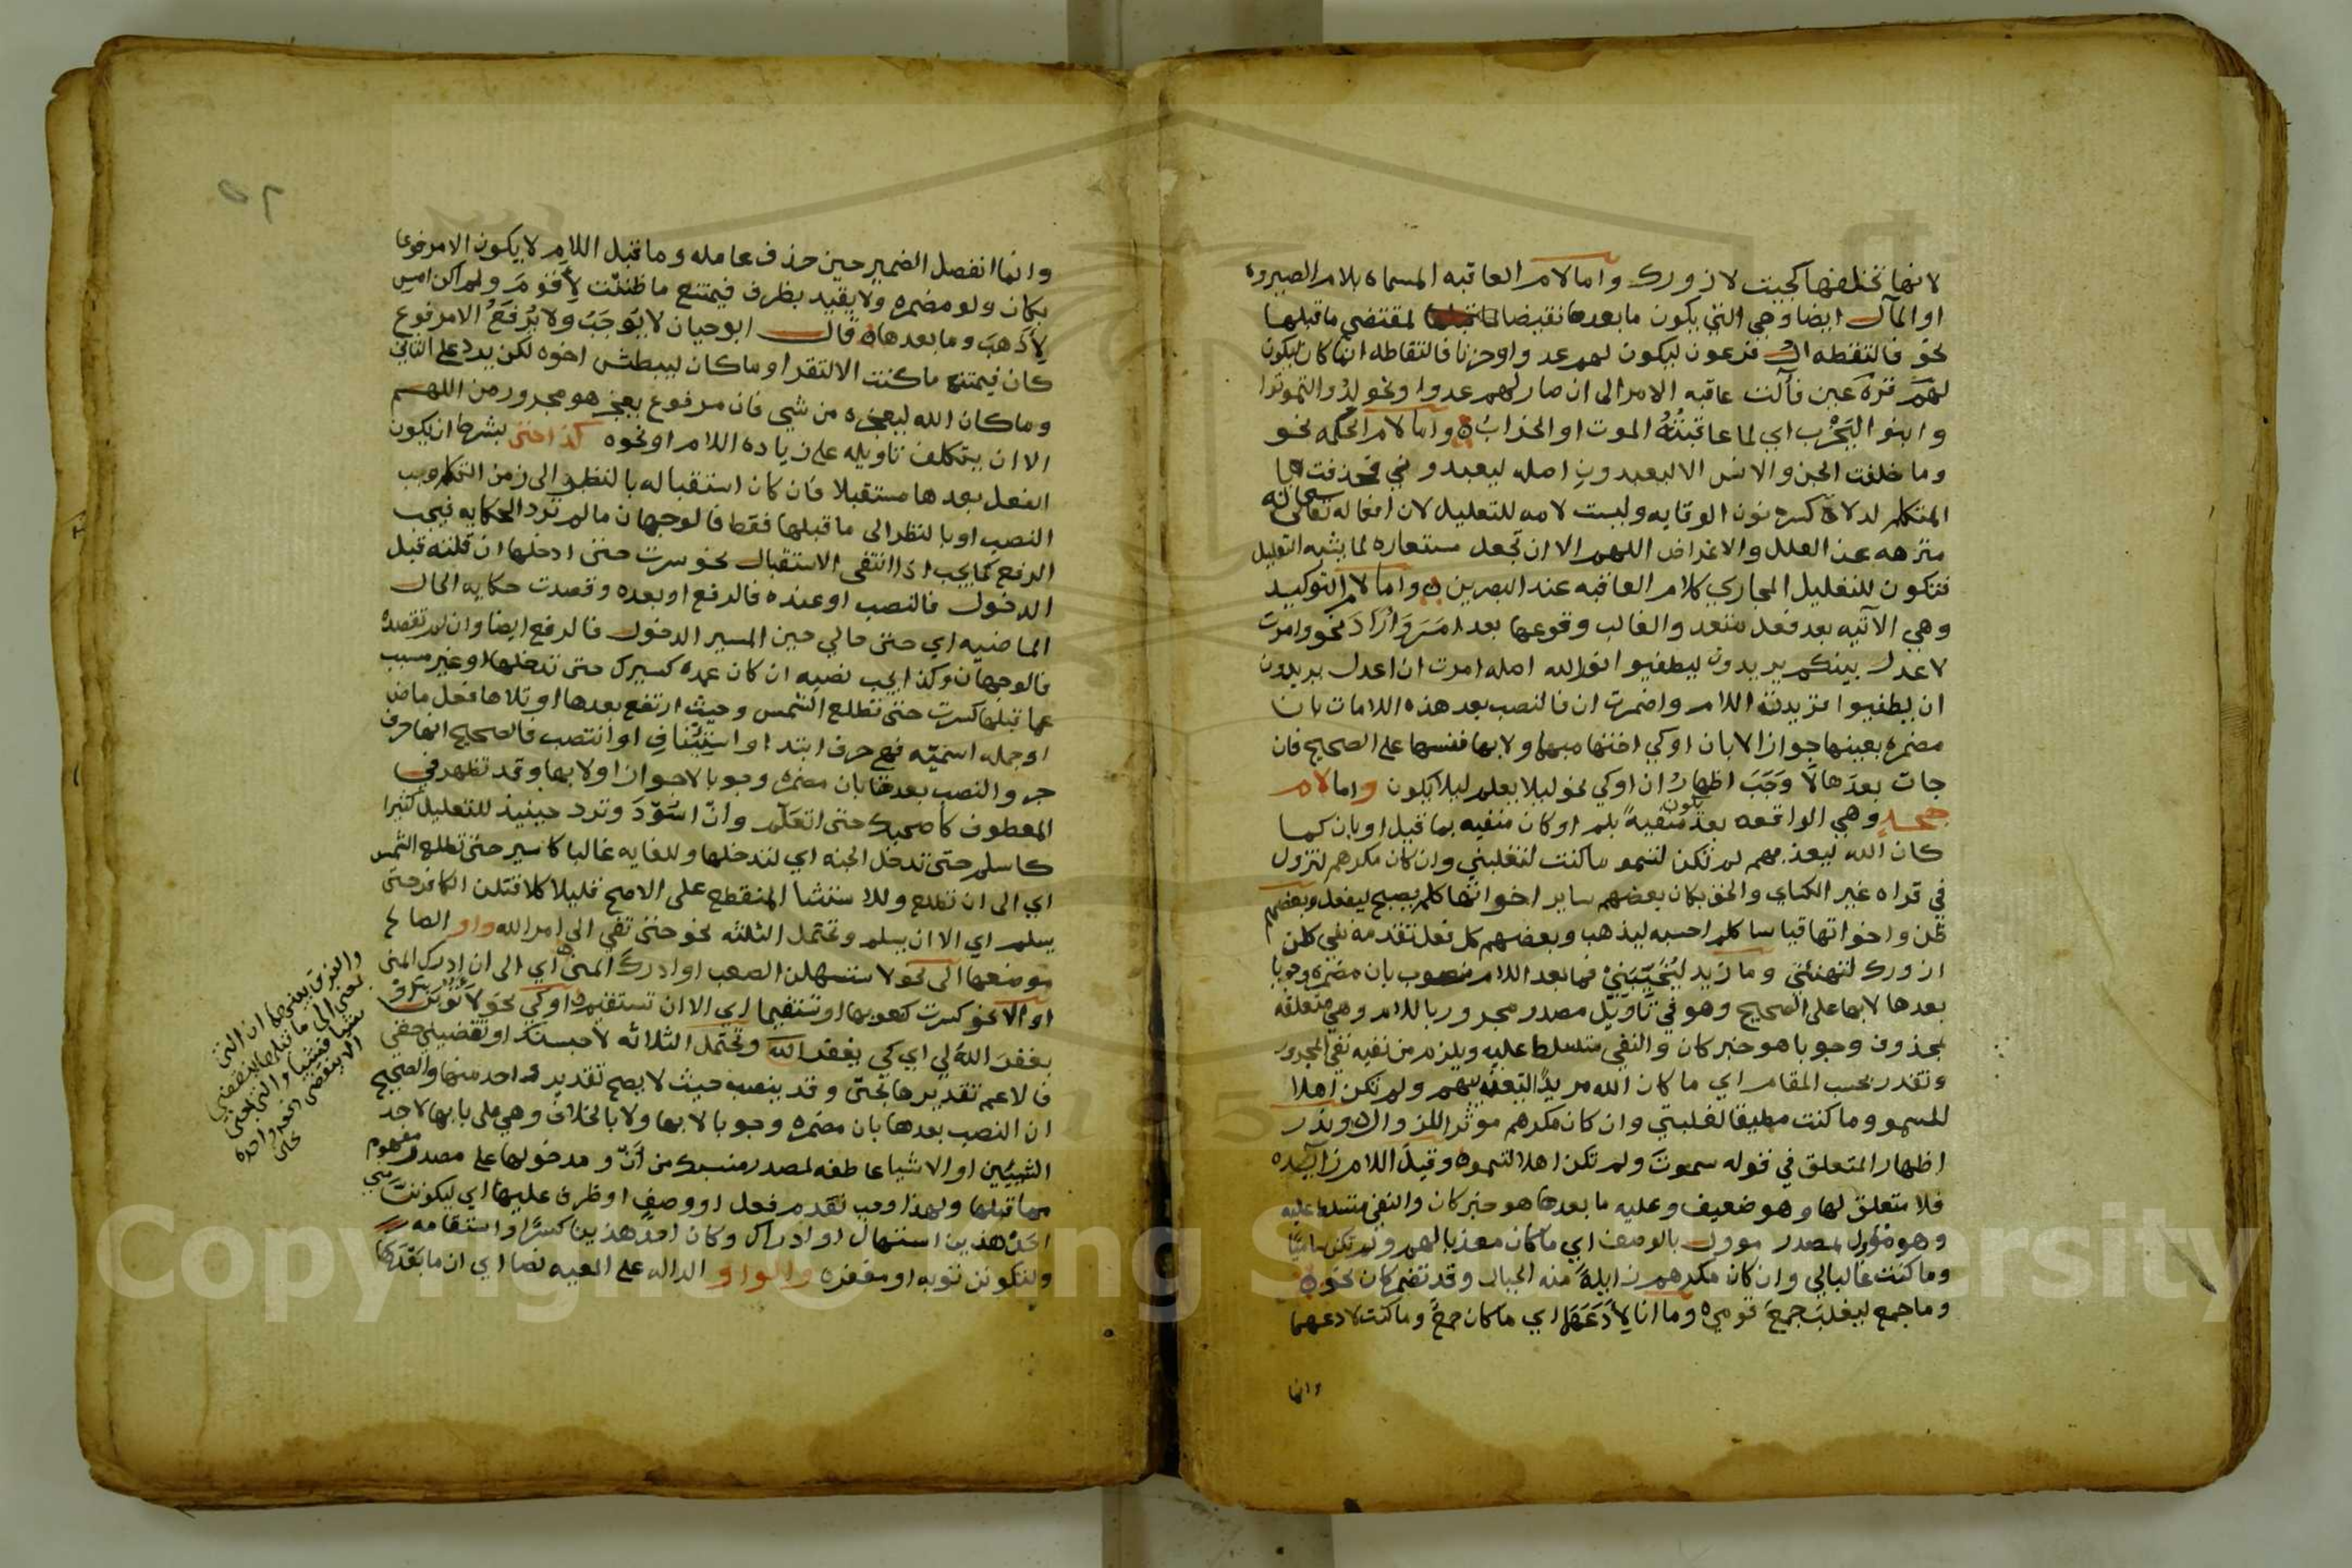 لانها تختلفها كجيت لازورك واما لام العاقبه المسماه بلام الصيروره
او المآل ايضا وهي التي يكون ما بعدها نقيضا لمقتضي ما قبلها
نحو فالتقطه ال فرعون ليكون لهم عدوا وحزنا فالتقاطه انما كان ليكون
لهم قرة عين فآلت عاقبه الامر الى ان صار لهم عدوا ونحو لِدُوا للموتوا
وابنو الخرب اي لما عاقبته الموت او الخراب واما لام الحكمه نحو
وما خلقت الجن والانس الا ليعبدون اصله ليعبدونني فحذفت يا
المتكلم لدلاة كسر نون الوقايه وليست لامه للتعليل لان افعاله تعالى
منزهه عن العلل والاغراض اللهم الا ان تجعل مستعاره لما يشبه التعليل
فتكون للتعليل المجازي كلام العاقبه عند البصرين واما لام التوكيد
وهي الآتيه بعد فعل متعد والغالب وقوعها بعد امَرَ وَارَادَ نحو وامرت
لاعدل بينكم يريدون ليطفيوا نور الله اصله امرت ان اعدل يريدون
ان يطفيوا فزيدت اللام واضمرت ان فالنصب بعد هذه اللامات بان
مضمره بعينها جوازا لا بان او كي اختها مبهما ولا بها نفسها على الصحيح فان
جات بعدها لا وَجَبَ اظهار ان او كي نحو ليلا يعلم ليلا يكون واما لام
جحد وهي الواقعه بعد يكون منفيةً بلم او كان منفيه بما قبل او بان كما
كان الله ليعذبهم لم تكن لتسمو ما كنت لتغلبني وان كان مكرهم لتزول
في قراه غير الكساي والحق بكان بعضهم ساير اخواتها كلم يصبح ليفعل وبعضهم
ظن واخواتها قياسا كلم احسبه ليذهب وبعضهم كل فعل تقدمه نفي كلن
ازورك لتهنئني وما زيد ليُخَيِّبَنِي فما بعد اللام منصوب بان مضمره وجوبا
بعدها لا بها على الصحيح وهو في تاويل مصدر مجرور باللام وهي متعلقه
بمحذوف وجوبا هو خبر كان والنفي متسلط عليه ويلزم من نفيه نفي المجرور
وتقدر بحسب المقام اي ما كان الله مريدًا لتعذيبهم ولم تكن اهلا
للسمو وما كنت مطيقا لغلبتي وان كان مكرهم موثرا للزوال وندر
اظهار المتعلق في قوله سموتَ ولم تكن اهلا لتسمو وقيل اللام زايده
فلا متعلق لها وهو ضعيف وعليه ما بعدها هو خبر كان والنفي متسلط عليه
وهو مؤول بمصدر موول بالوصف اي ما كان معذبا لهم ولم تكن ساميًا
وما كنت غالبا لي وان كان مكرهم زايلةً منه الجبال وقد تضمر كان نحو
وما جمع ليغلبَ جمعَ قومي وما انا لِأَدَعَهَا اي ما كان جمعٌ وما كنت لادعهما
وانما
٥٢
وانما انفصل الضمير حين حذف عامله وما قبل اللام لا يكون الا مرفوعا
بكان ولو مضمره ولا يقيد بظرف فيمتنع ما ظننت لِأَقومَ ولم اكن امسِ
لِأَذهبَ وما بعدها قال ابو حيان لا يُوجَبُ ولا يرفعُ الا مرفوع
كان فيمتنع ما كنت الا لتقرا وما كان ليبطش اخوه لكن يرد على الثاني
وما كان الله ليعجزه من شي فان مرفوع يعجز هو مجرور من اللهم
الا ان يتكلف تاويله على زياده اللام او نحوه كذا حتى بشرط ان يكون
الفعل بعدها مستقبلا فان كان استقباله بالنظر الى زمن التكلم وجب
النصب او بالنظر الى ما قبلها فقط فالوجهان ما لم ترد الحكايه فيجب
الرفع كما يجب اذا انتفى الاستقبال نحو سرت حتى ادخلها ان قلته قبل
الدخول فالنصب او عنده فالرفع او بعده وقصدت حكايه الحال
الماضيه اي حتى حالي حين المسير الدخول فالرفع ايضا وان لم تقصده
فالوجهان وكذا يجب نصبه ان كان عمده كسيري حتى تدخلها او غير مسبب
عما قبلها كسرت حتى تطلع الشمس وحيث ارتفع بعدها او تلاها فعل ماض
او جمله اسميّه فهي حرف ابتدا او استئناف او انتصب فالصحيح انها حرف
جر والنصب بعدها بان مضمره وجوبا لا جوازا ولا بها وقد تظهر في
المعطوف كأصحبك حتى اتعلّم وانْ اسُوّدَ وترد حينيذ للتعليل كثيرا
كاسلم حتى تدخل الجنه اي لتدخلها وللغايه غالبا كاسير حتى تطلع الشمس
اي الى ان تطلع وللاستثنا المنقطع على الاصح قليلا كلاقتلن الكافر حتى
يسلم اي الا ان يسلم وتحتمل الثلثه نحو حتى تفي الى امر الله واو الصالح
موضعها الى نحو لاستسهلن الصعب او ادرك المنى اي الى ان ادرك المنى
او الا نحو كسرت كعوبها او تستقيما اي الا ان تستقيم او كي نحو لاتوبن او
يغفرَ اللهُ لي اي كي يغفر الله وتحتمل الثلاثه لاحبسنك او تقضيني حقي
فلاعم تقديرها بحتى وقد ينصب حيث لا يصح تقدير احد منها والصحيح
ان النصب بعدها بان مضمره وجوبا لا بها ولا بالخلاف وهي على بابها لاحد
الشيئين او الاشيا عاطفه لمصدر منسبك من أنْ ومدخولها على مصدر مفهوم
مما قبلها ولهذا وجب تقدم فعل او وصف او ظرف عليها اي ليكونن مني
احد هذين استسهال او ادراك وكان احد هذين كسرًا او استقامه
ولتكونن توبه او مغفره والواو الداله على المعيه نصا اي ان ما بعدها
والفرق بينها ان التي
بمعنى الى ما قبلها ينقضي
شيا فشيا والتي بمعنى
الا ينقضي دفعه واحده